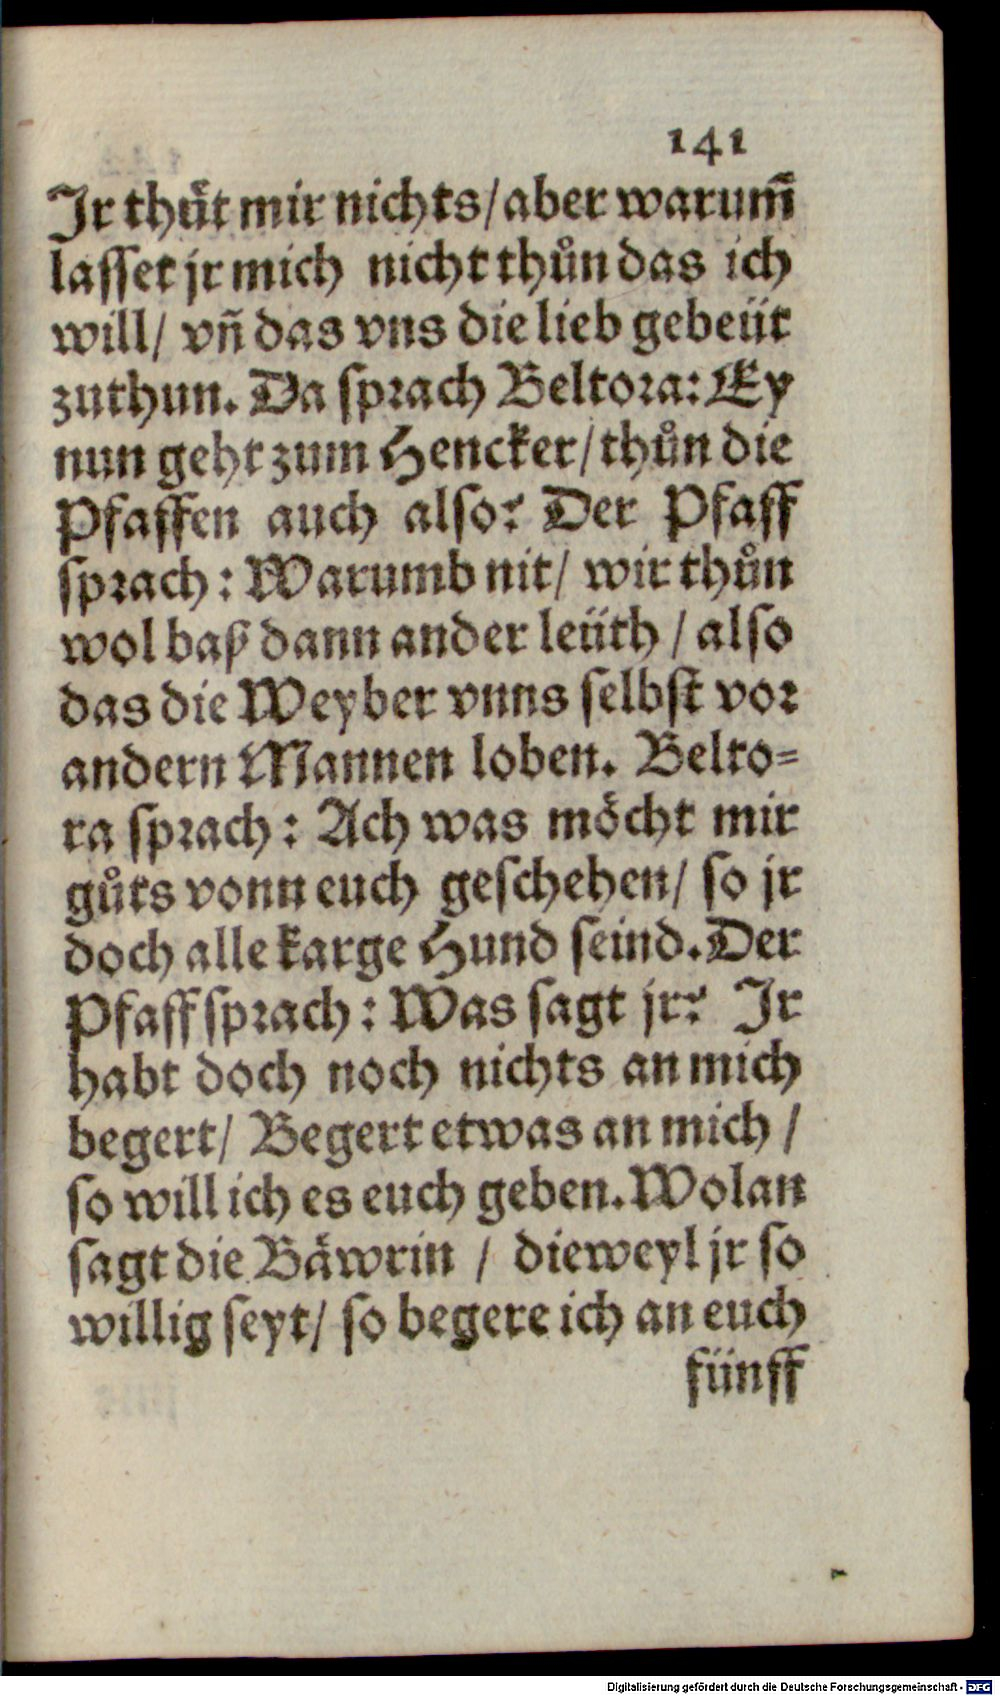 141
Jr thuͤt mir nichts/ aber warum̃
lasset jr mich nicht thůn das ich
will/ vñ das vns die lieb gebeüt
zuthun. Da sprach Beltora: Ey
nun geht zum Hencker/ thůn die
Pfaffen auch also? Der Pfaff
sprach: Warumb nit/ wir thůn
wol baß dann ander leüth / also
das die Weyber vnns selbst vor
andern Mannen loben. Belto-
ra sprach: Ach was moͤcht mir
gůts vonn euch geschehen/ so jr
doch alle karge Hund seind. Der
Pfaff sprach: Was sagt jr? Jr
habt doch noch nichts an mich
begert/ Begert etwas an mich /
so will ich es euch geben. Wolan
sagt die Baͤwrin / dieweyl jr so
willig seyt/ so begere ich an euch
fünff
Digitalisierung gefördert durch die Deutsche Forschungsgemeinschaft - DFG